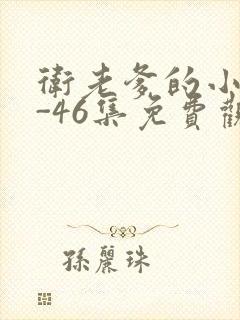 衛老爹的小
-46集免費觀
孫麗珠